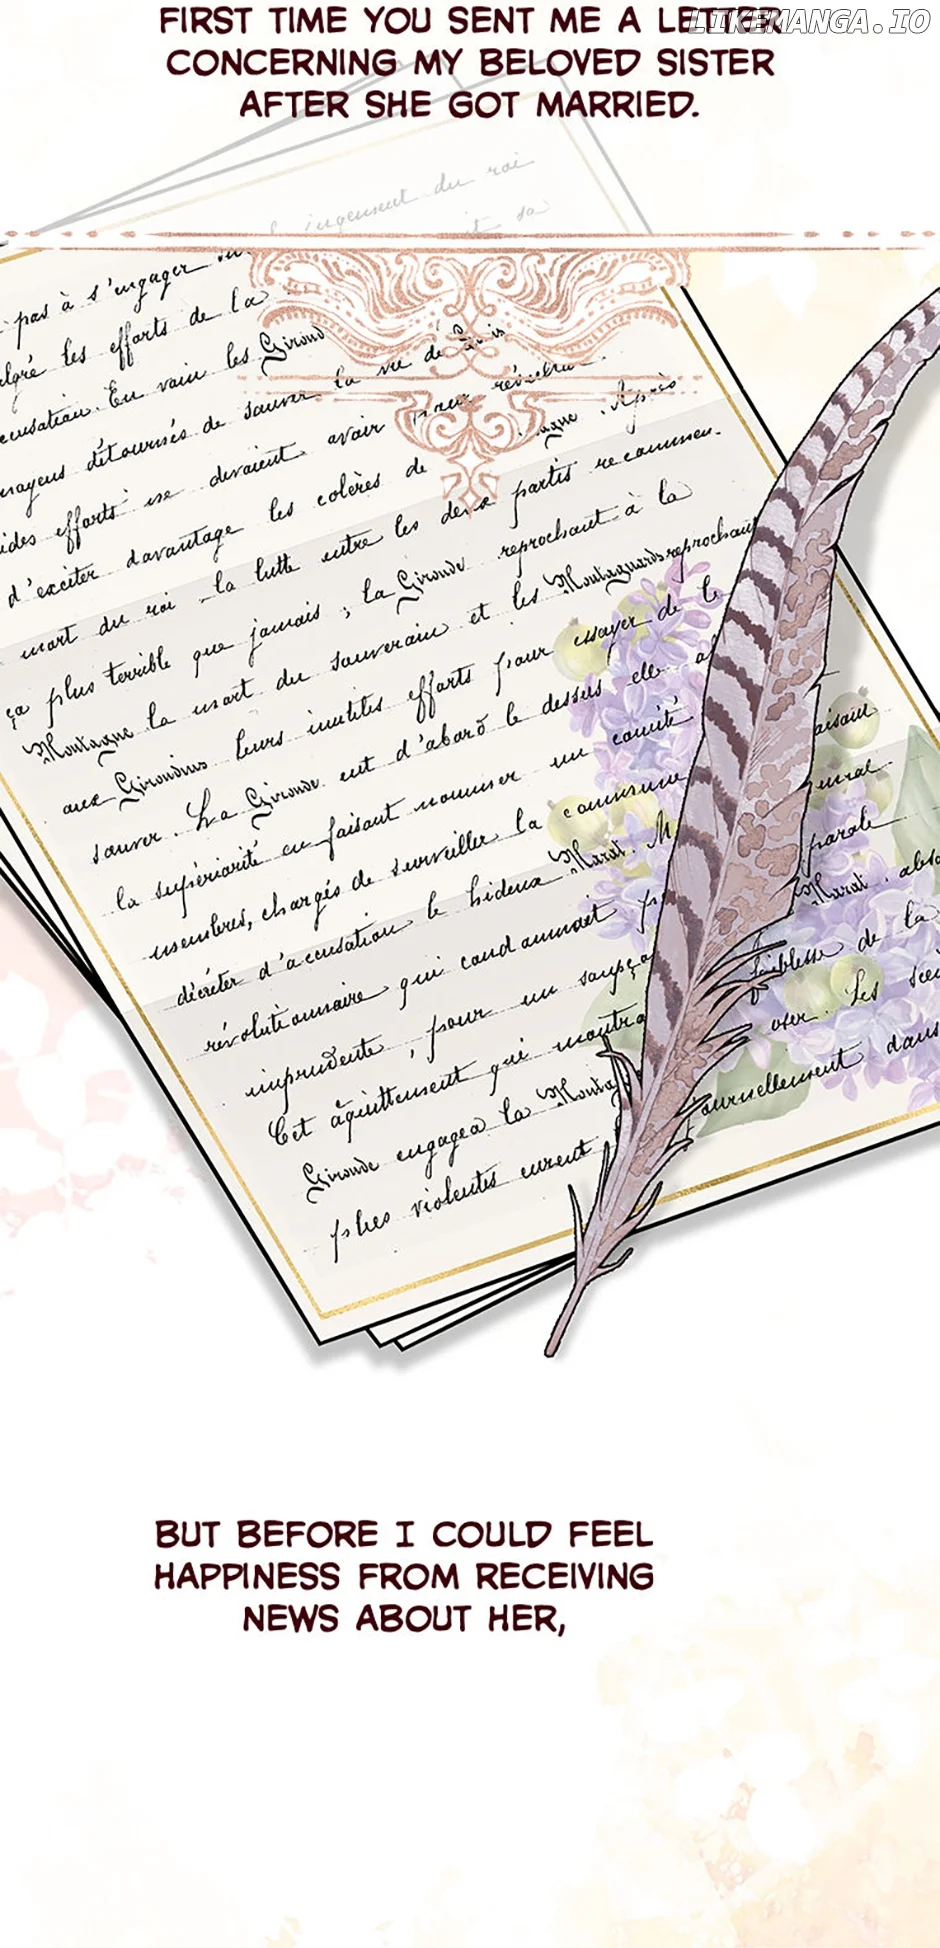 FIRST TIME YOU SENT ME A LETTER
LIKEMANGA.IO
CONCERNING MY BELOVED SISTER
AFTER SHE GOT MARRIED.
du roi
pas à s'engager
les efforts de la
En vain les Girond
détournés de sauver la vie de
efforts ne devaient avoir pour
Après
d'exciter davantage les colères de
mort du roi la lutte entre les deux partis recommen.
ça plus terrible que jamais; la Gironde reprochant à la
Montagne la mort du souverain et les Montagnards reprochant
aux Girondins leurs inutiles efforts pour essayer de le
sauver. La Gironde eut d'abord le dessus
la supériorité en faisant nommer un comité
membres, chargés de surveiller la commune
décréter d'accusation le hideux Marat.
Marat
révolutionnaire qui condamnait
parole
imprudente, pour un
faiblesse de la
Cet acquittement qui
oser. Les
Gironde engagea la
dans
plus violentes eurent
BUT BEFORE I COULD FEEL
HAPPINESS FROM RECEIVING
NEWS ABOUT HER,